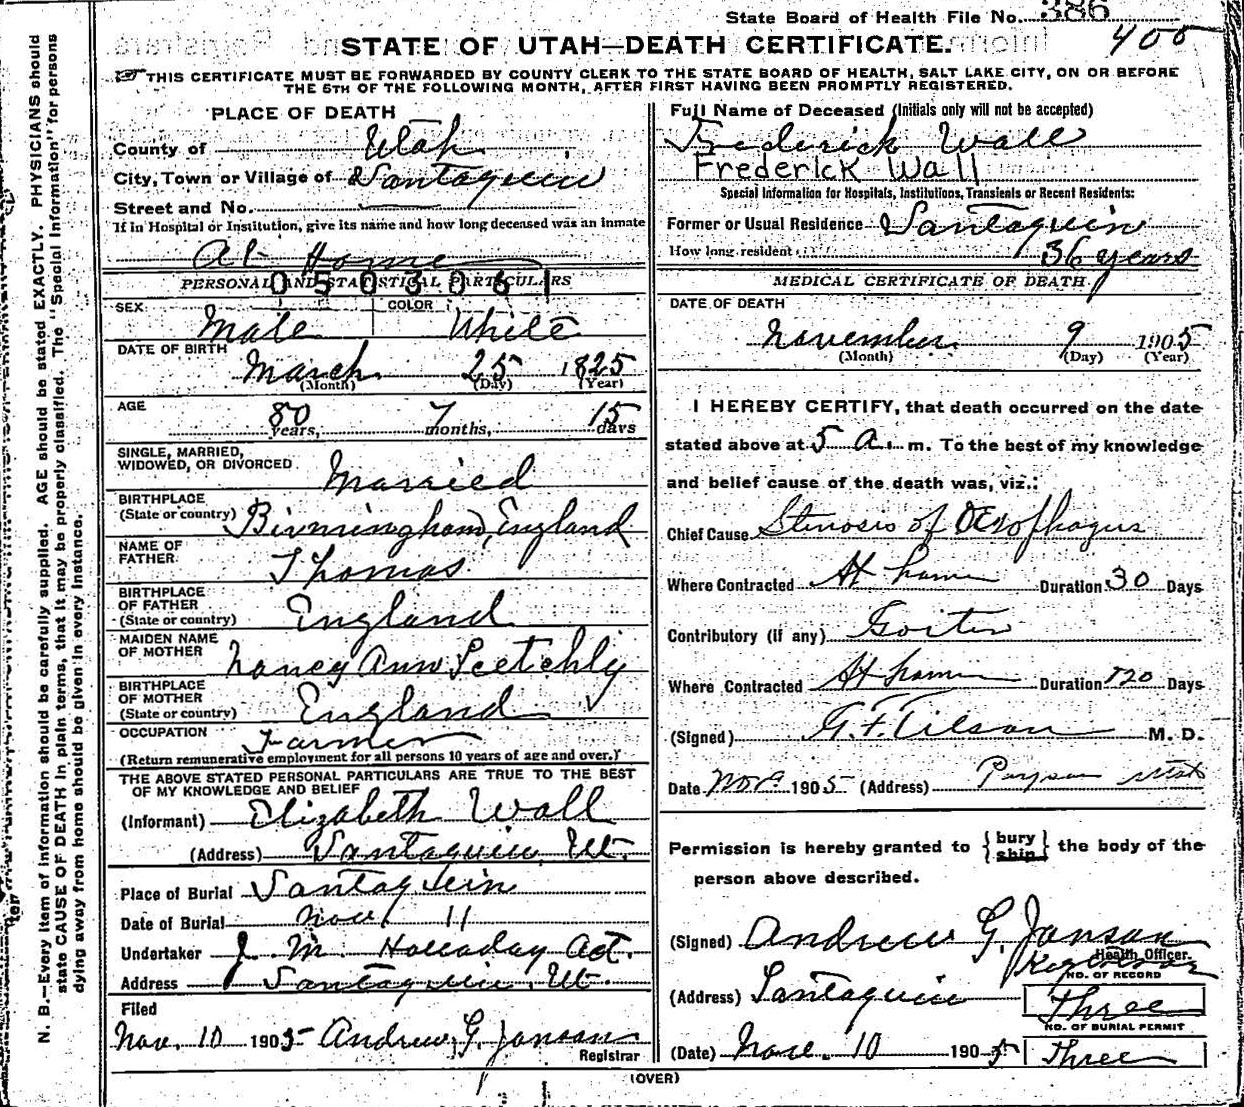 State Board of Health File No. 386
400
STATE OF UTAH—DEATH CERTIFICATE.
THIS CERTIFICATE MUST BE FORWARDED BY COUNTY CLERK TO THE STATE BOARD OF HEALTH, SALT LAKE CITY, ON OR BEFORE
THE 5TH OF THE FOLLOWING MONTH, AFTER FIRST HAVING BEEN PROMPTLY REGISTERED.
N. B.—Every item of information should be carefully supplied. AGE should be stated EXACTLY. PHYSICIANS should
state CAUSE OF DEATH in plain terms, that it may be properly classified. The "Special Information" for persons
dying away from home should be given in every instance.
PLACE OF DEATH
County of Utah
City, Town or Village of Santaquin
Street and No.
If in Hospital or Institution, give its name and how long deceased was an inmate
At Home
0503061
PERSONAL AND STATISTICAL PARTICULARS
SEX Male
COLOR White
DATE OF BIRTH
March 25 1825
(Month) (Day) (Year)
AGE
80 years, 7 months, 15 days
SINGLE, MARRIED,
WIDOWED, OR DIVORCED Married
BIRTHPLACE
(State or country) Birmingham, England
NAME OF
FATHER Thomas
BIRTHPLACE
OF FATHER
(State or country) England
MAIDEN NAME
OF MOTHER Nancy Ann
BIRTHPLACE
OF MOTHER
(State or country) England
OCCUPATION
Farmer
(Return remunerative employment for all persons 10 years of age and over.)
THE ABOVE STATED PERSONAL PARTICULARS ARE TRUE TO THE BEST
OF MY KNOWLEDGE AND BELIEF
(Informant) Elizabeth Wall
(Address) Santaquin, Ut.
Place of Burial Santaquin
Date of Burial Nov 11
Undertaker J. M. Holladay Act.
Address Santaquin, Ut.
Filed
Nov. 10 1905 Andrew G. Janson
Registrar
Full Name of Deceased (Initials only will not be accepted)
Frederick Wall
Frederick Wall
Special Information for Hospitals, Institutions, Transients or Recent Residents:
Former or Usual Residence Santaquin
How long resident 36 years
MEDICAL CERTIFICATE OF DEATH
DATE OF DEATH
November 9 1905
(Month) (Day) (Year)
I HEREBY CERTIFY, that death occurred on the date
stated above at 5 a. m. To the best of my knowledge
and belief cause of the death was, viz.:
Chief Cause Stenosis of Œsophagus
Where Contracted At home Duration 30 Days
Contributory (if any) Goiter
Where Contracted At home Duration 120 Days
(Signed) G. F. Tilson M. D.
Date Nov 9 1905 (Address) Payson Utah
Permission is hereby granted to { bury ship } the body of the
person above described.
(Signed) Andrew G. Janson
Health Officer.
Registrar
(Address) Santaquin
NO. OF RECORD
Three
NO. OF BURIAL PERMIT
(Date) Nov. 10 1905 Three
(OVER)